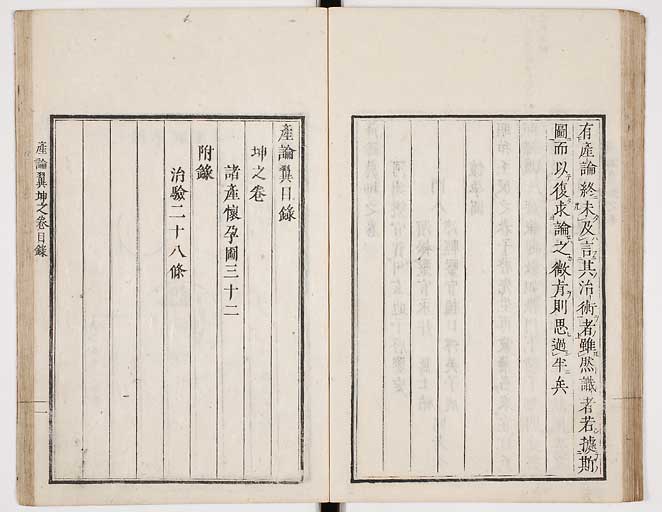 有產論終未及言其治術者雖然識者若據斯
圖而以復求論之微肯則思過半矣
產論翼目錄
坤之卷
諸產懷孕圖三十二
附錄
治驗二十八條
產論翼坤之卷目錄
一